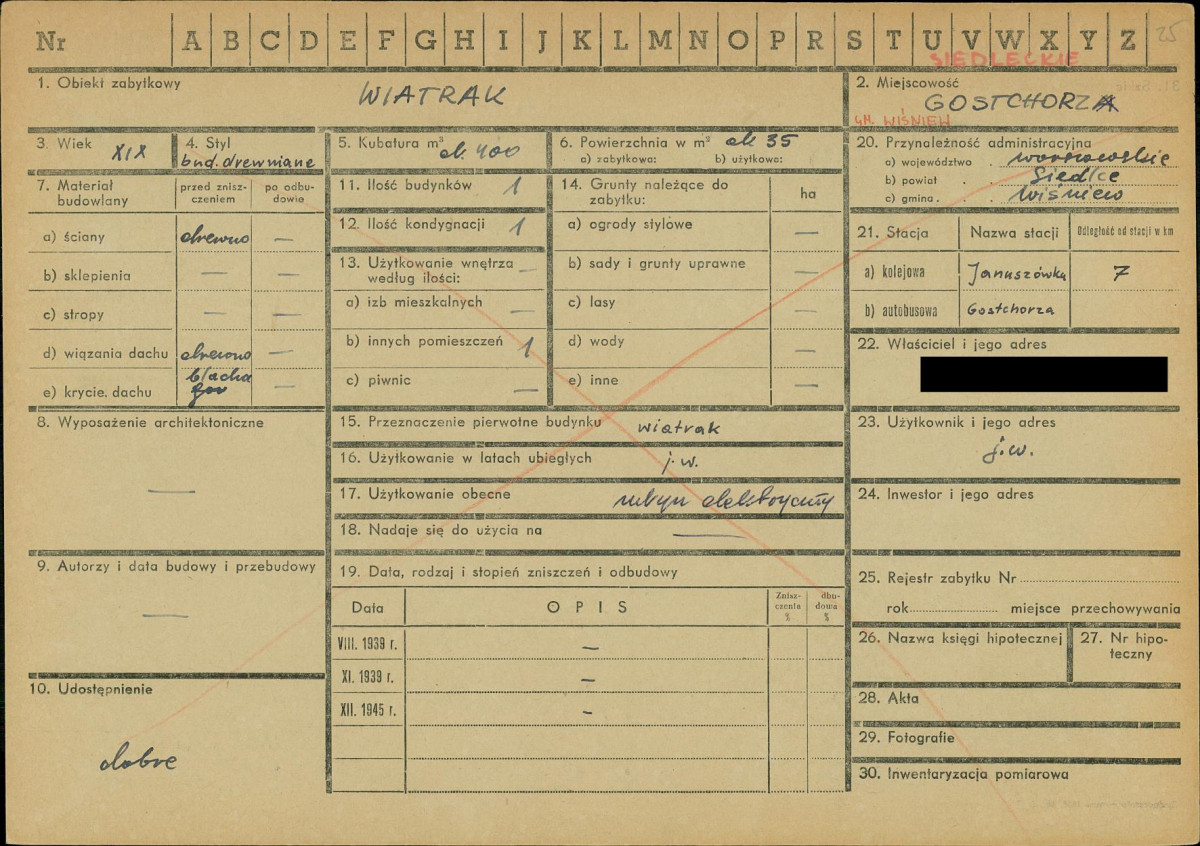 Nr A B C D E F G H I J K L M N O P R S T U V W X Y Z 25
SIEDLECKIE
1. Obiekt zabytkowy WIATRAK
2. Miejscowość GOSTCHORZA
GM. WIŚNIEW
3. Wiek XIX
4. Styl bud. drewniane
5. Kubatura m³ ok. 400
6. Powierzchnia w m² ok 35
a) zabytkowa: b) użytkowa:
20. Przynależność administracyjna
a) województwo . warszawskie
b) powiat . . Siedlce
c) gmina . . Wiśniew
7. Materiał budowlany
przed zniszczeniem
po odbudowie
a) ściany drewno —
b) sklepienia — —
c) stropy — —
d) wiązania dachu drewno —
e) krycie. dachu blacha —
11. Ilość budynków 1
12. Ilość kondygnacji 1
13. Użytkowanie wnętrza —
według ilości:
a) izb mieszkalnych —
b) innych pomieszczeń 1
c) piwnic —
14. Grunty należące do
zabytku:
ha
a) ogrody stylowe —
b) sady i grunty uprawne —
c) lasy —
d) wody —
e) inne —
21. Stacja Nazwa stacji Odległość od stacji w km
a) kolejowa Januszówka 7
b) autobusowa Gostchorza
22. Właściciel i jego adres
8. Wyposażenie architektoniczne
—
15. Przeznaczenie pierwotne budynku wiatrak
16. Użytkowanie w latach ubiegłych j.w.
17. Użytkowanie obecne młyn elektryczny
18. Nadaje się do użycia na —
23. Użytkownik i jego adres
j.w.
24. Inwestor i jego adres
9. Autorzy i data budowy i przebudowy
—
19. Data, rodzaj i stopień zniszczeń i odbudowy
Data OPIS
Zniszczenia %
dbudowa %
VIII. 1939 r. —
XI. 1939 r. —
XII. 1945 r. —
25. Rejestr zabytku Nr
rok miejsce przechowywania
26. Nazwa księgi hipotecznej
27. Nr hipoteczny
10. Udostępnienie
dobre
28. Akta
29. Fotografie
30. Inwentaryzacja pomiarowa